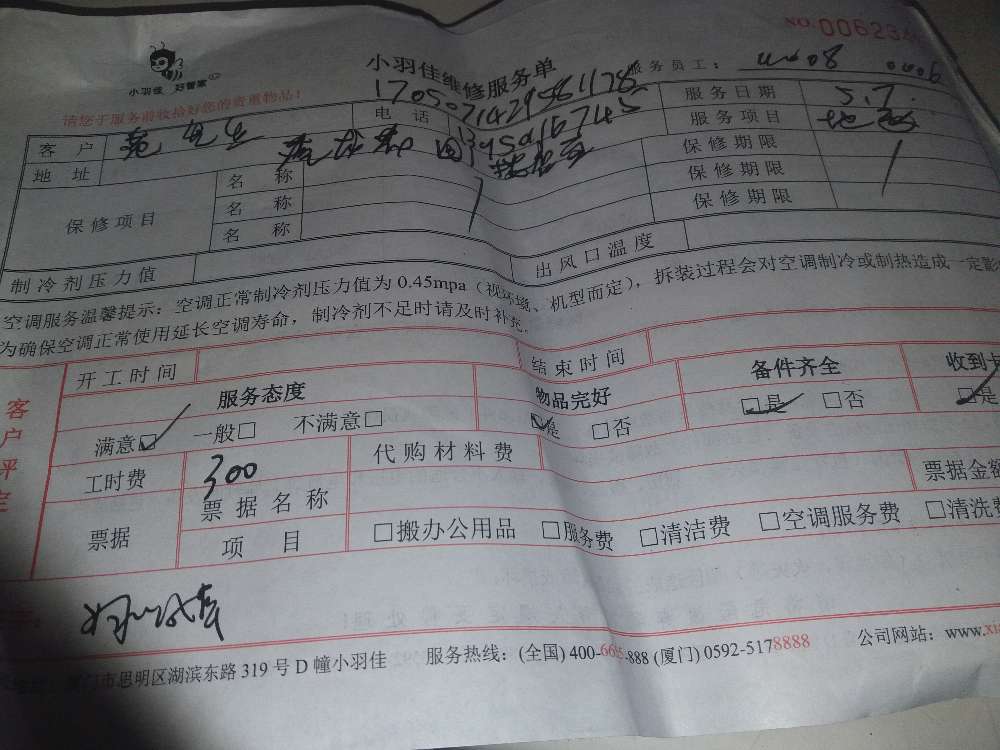 NO.00623
小羽佳 好管家
小羽佳维修服务单
服务员工：
请您于服务前收拾好您的贵重物品！
17050714295861178
客 户
电 话
服务日期 5.7.
地 址
服务项目
保修项目 名 称 保修期限
名 称 保修期限
名 称 保修期限
制冷剂压力值 出风口温度
空调服务温馨提示：空调正常制冷剂压力值为 0.45mpa（视环境、机型而定），拆装过程会对空调制冷或制热造成一定影
为确保空调正常使用延长空调寿命，制冷剂不足时请及时补充。
客户评定
开工时间 结束时间
服务态度 物品完好 备件齐全 收到卡
满意☑ 一般□ 不满意□ ☑是 □否 ☑是 □否 ☑是
工时费 300 代购材料费
票据 票据名称 票据金额
项 目 □搬办公用品 □服务费 □清洁费 □空调服务费 □清洗费
厦门市思明区湖滨东路 319 号 D 幢小羽佳 服务热线：(全国) 400-6665-888 (厦门) 0592-5178888 公司网站：www.xia